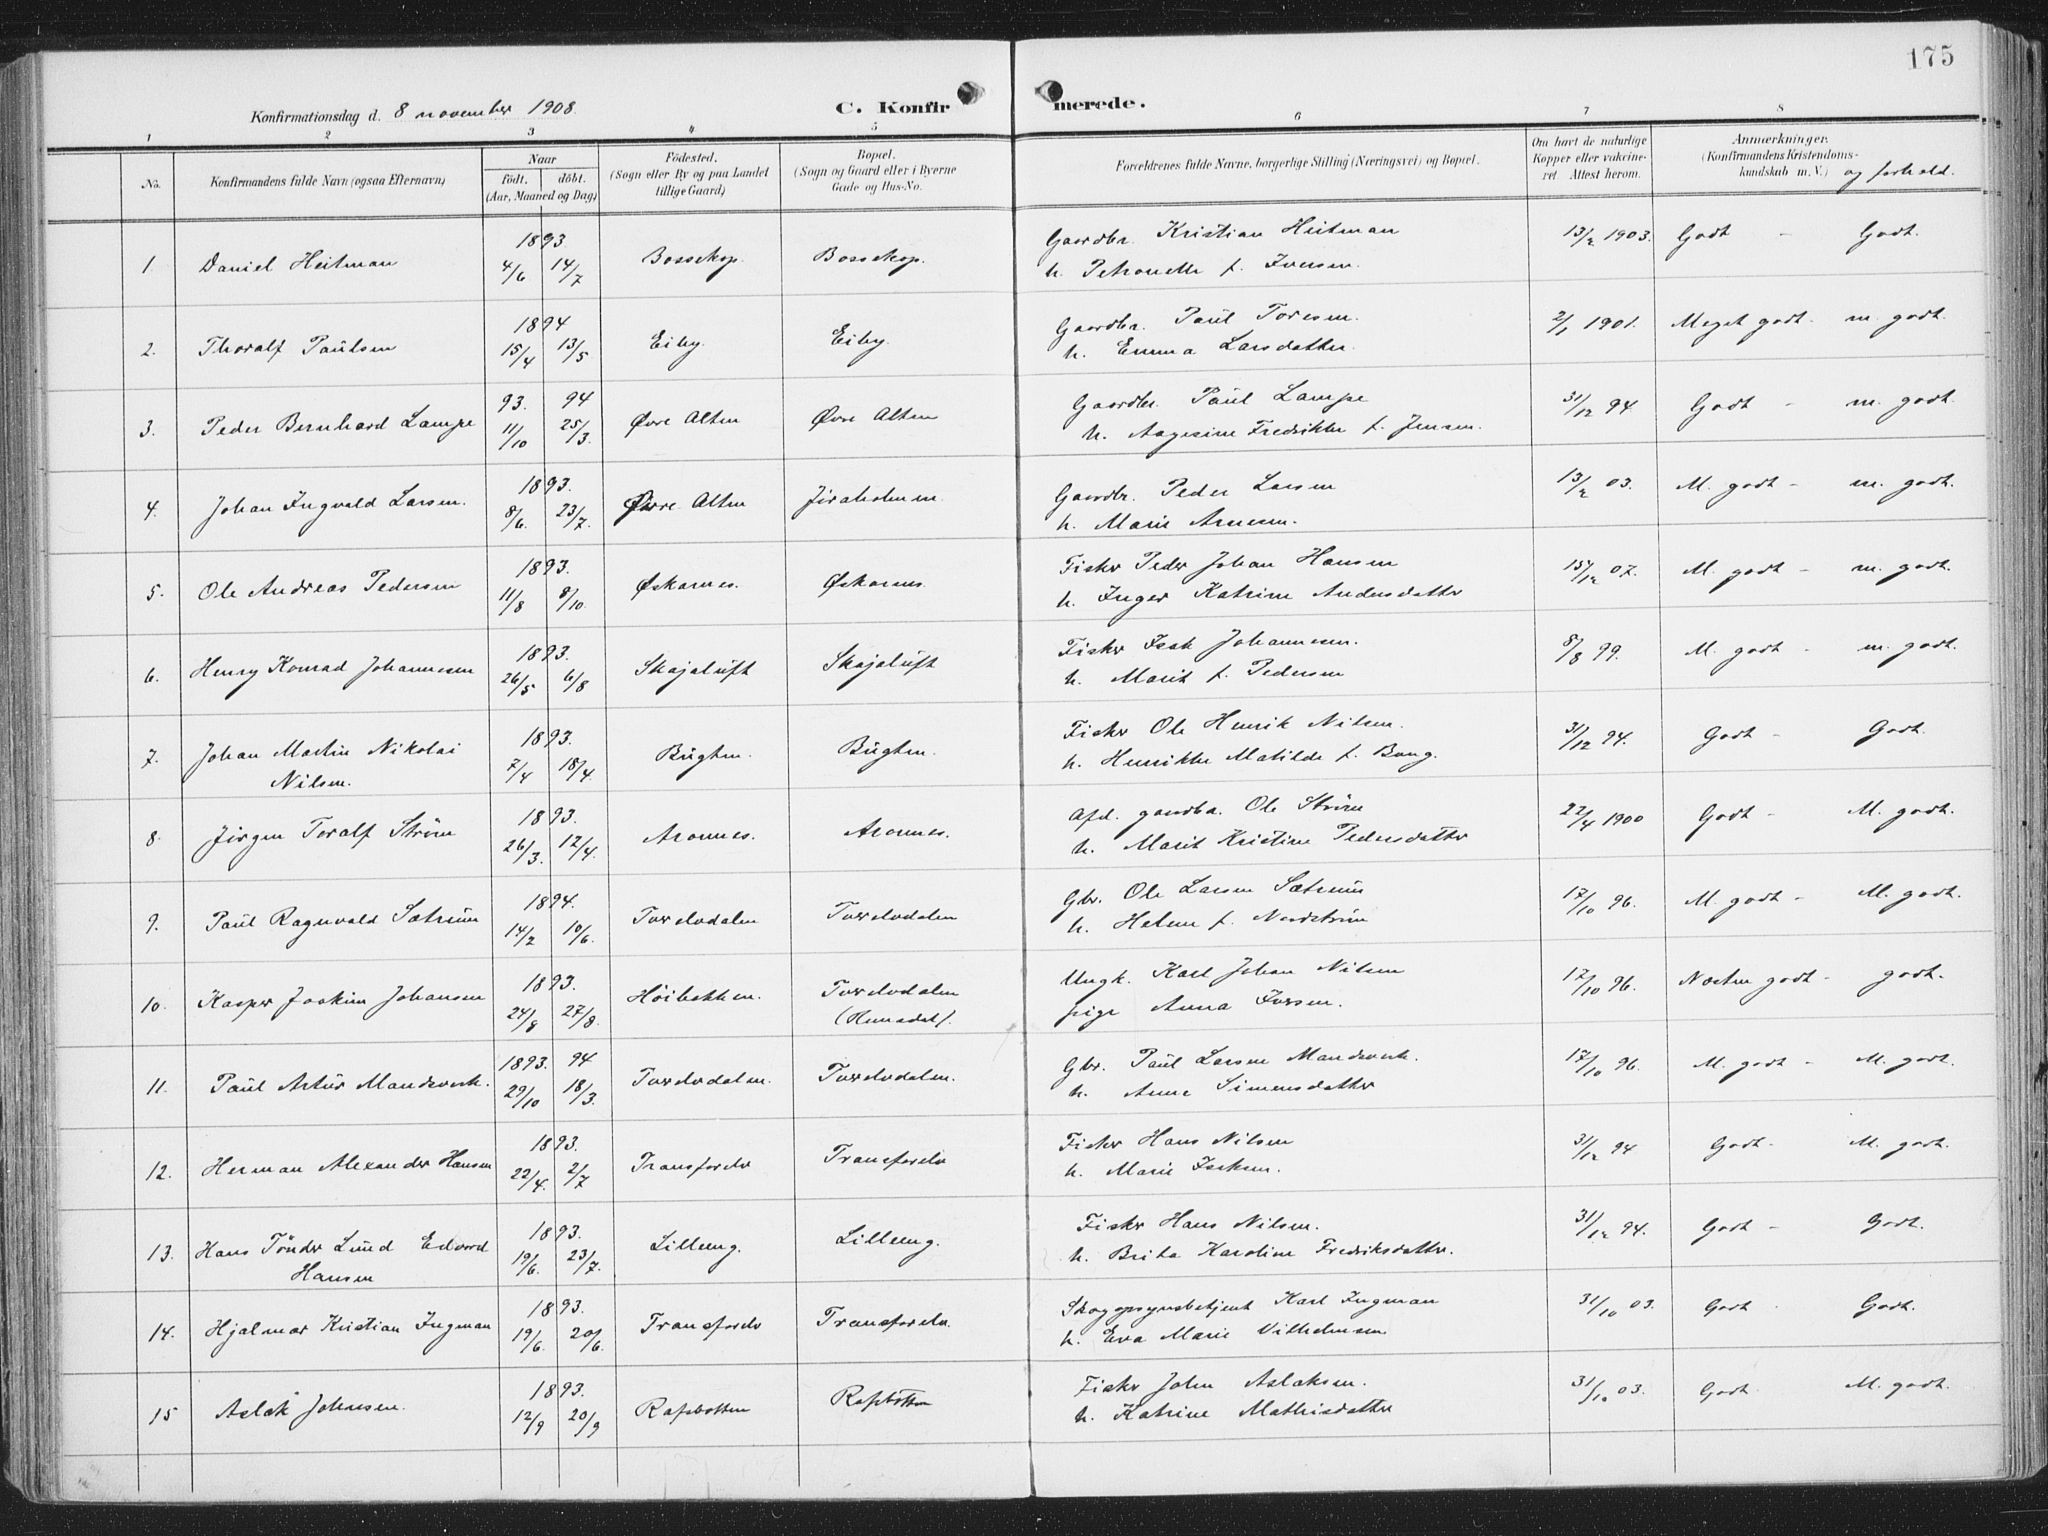 175
Konfirmationsdag d. 8 november 1908.
C. Konfirmerede.
1 2 3 4 5 6 7 8
No.
Konfirmandens fulde Navn (ogsaa Efternavn)
Naar
födt, döbt.
(Aar, Maaned og Dag)
Födested.
(Sogn eller By og paa Landet
tillige Gaard)
Bopæl.
(Sogn og Gaard eller i Byerne
Gade og Hus-No.
Forældrenes fulde Navne, borgerlige Stilling (Næringsvei) og Bopæl.
Om havt de naturlige
Kopper eller vakcine-
ret Attest herom.
Anmærkninger.
(Konfirmandens Kristendoms-
kundskab m. V.) og forhold.
1893.
1. Daniel Heitman 4/6 14/7 Bossekop. Bossekop.
Gaardbr. Kristian Heitman 13/2 1903. Godt - Godt.
h. Petronelle f. Iversen.
1894
2. Thoralf Paulsen 15/4 13/5 Eiby. Eiby.
Gaardbr. Paul Toresen. 2/1 1901. Meget godt - m. godt.
h. Emma Larsdatter.
93. 94
3. Peder Bernhard Lampe 11/10 25/3. Øvre Alten Øvre Alten
Gaardbr. Paul Lampe 31/12 94. Godt - m. godt.
h. Aagesine Fredrikke f. Jensen.
1893.
4. Johan Ingvald Larsen. 8/6. 23/7. Øvre Alten Jiraholmen.
Gaardbr. Peder Larsen 13/2 03. M. godt - m. godt.
h. Marie Arnesen.
1893.
5. Ole Andreas Pedersen 11/8 8/10. Øskarnes. Øskarnes.
Fisker Peder Johan Hansen 15/12 07. M. godt - m. godt.
h. Inger Katrine Andersdatter
1893.
6. Henry Konrad Johannesen 26/5 6/8 Skajaluft Skajaluft
Fisker Isak Johannesen. 8/8 99. M. godt - m. godt.
h. Marit f. Pedersen
1893.
7. Johan Martin Nikolai 7/4 18/4. Bugten. Bugten.
Nilsen.
Fisker Ole Henrik Nilsen. 31/12 94. Godt - Godt.
h. Henrikke Matilde f. Bang.
1893.
8. Jørgen Toralf Strøm 26/3. 12/4. Aronnes. Aronnes.
Afd. gaardbr. Ole Strøm 22/4 1900 Godt - M. godt.
h. Marit Kristine Pedersdatter
1894.
9. Paul Ragnvald Sætrum 14/2 10/6. Tverelvdalen Tverelvdalen
Gbr. Ole Larsen Sætrum 17/10 96. M. godt - M. godt.
h. Helene f. Nordstrøm
1893.
10. Kasper Joakim Johansen 24/8 27/8. Høibakken. Tverelvdalen
Ungk. Karl Johan Nilsen 17/10 96. Næsten godt - godt.
pige Anna Iversen.
1893. 94
11. Paul Artur Mandsverk. 29/10 18/3. Tverelvdalen. Tverelvdalen.
Gbr. Paul Larsen Mandsverk. 17/10 96. M. godt - M. godt.
h. Anne Simensdatter
1893.
12. Herman Alexander Hansen 22/4. 2/7 Transfarelv Transfarelv
Fisker Hans Nilsen 31/12 94 Godt - M. godt.
h. Marie Isaksen.
1893.
13. Hans Tönder Lund Edvard 19/6. 23/7. Lilleeng. Lilleeng.
Hansen
Fisker Hans Nilsen. 31/12 94. Godt - Godt.
h. Brita Karoline Fredriksdatter.
1893.
14. Hjalmar Kristian Ingman 19/6. 20/6. Transfarelv Transfarelv.
Skogopsynsbetjent Karl Ingman 31/10 03. Godt - Godt.
h. Eva Marie Vilhelmsen
1893.
15 Aslak Johnsen. 12/9 20/9 Rafsbotten Rafsbotten
Fisker John Aslaksen. 31/10 03. Godt - M. godt.
h. Katrine Mathisdatter